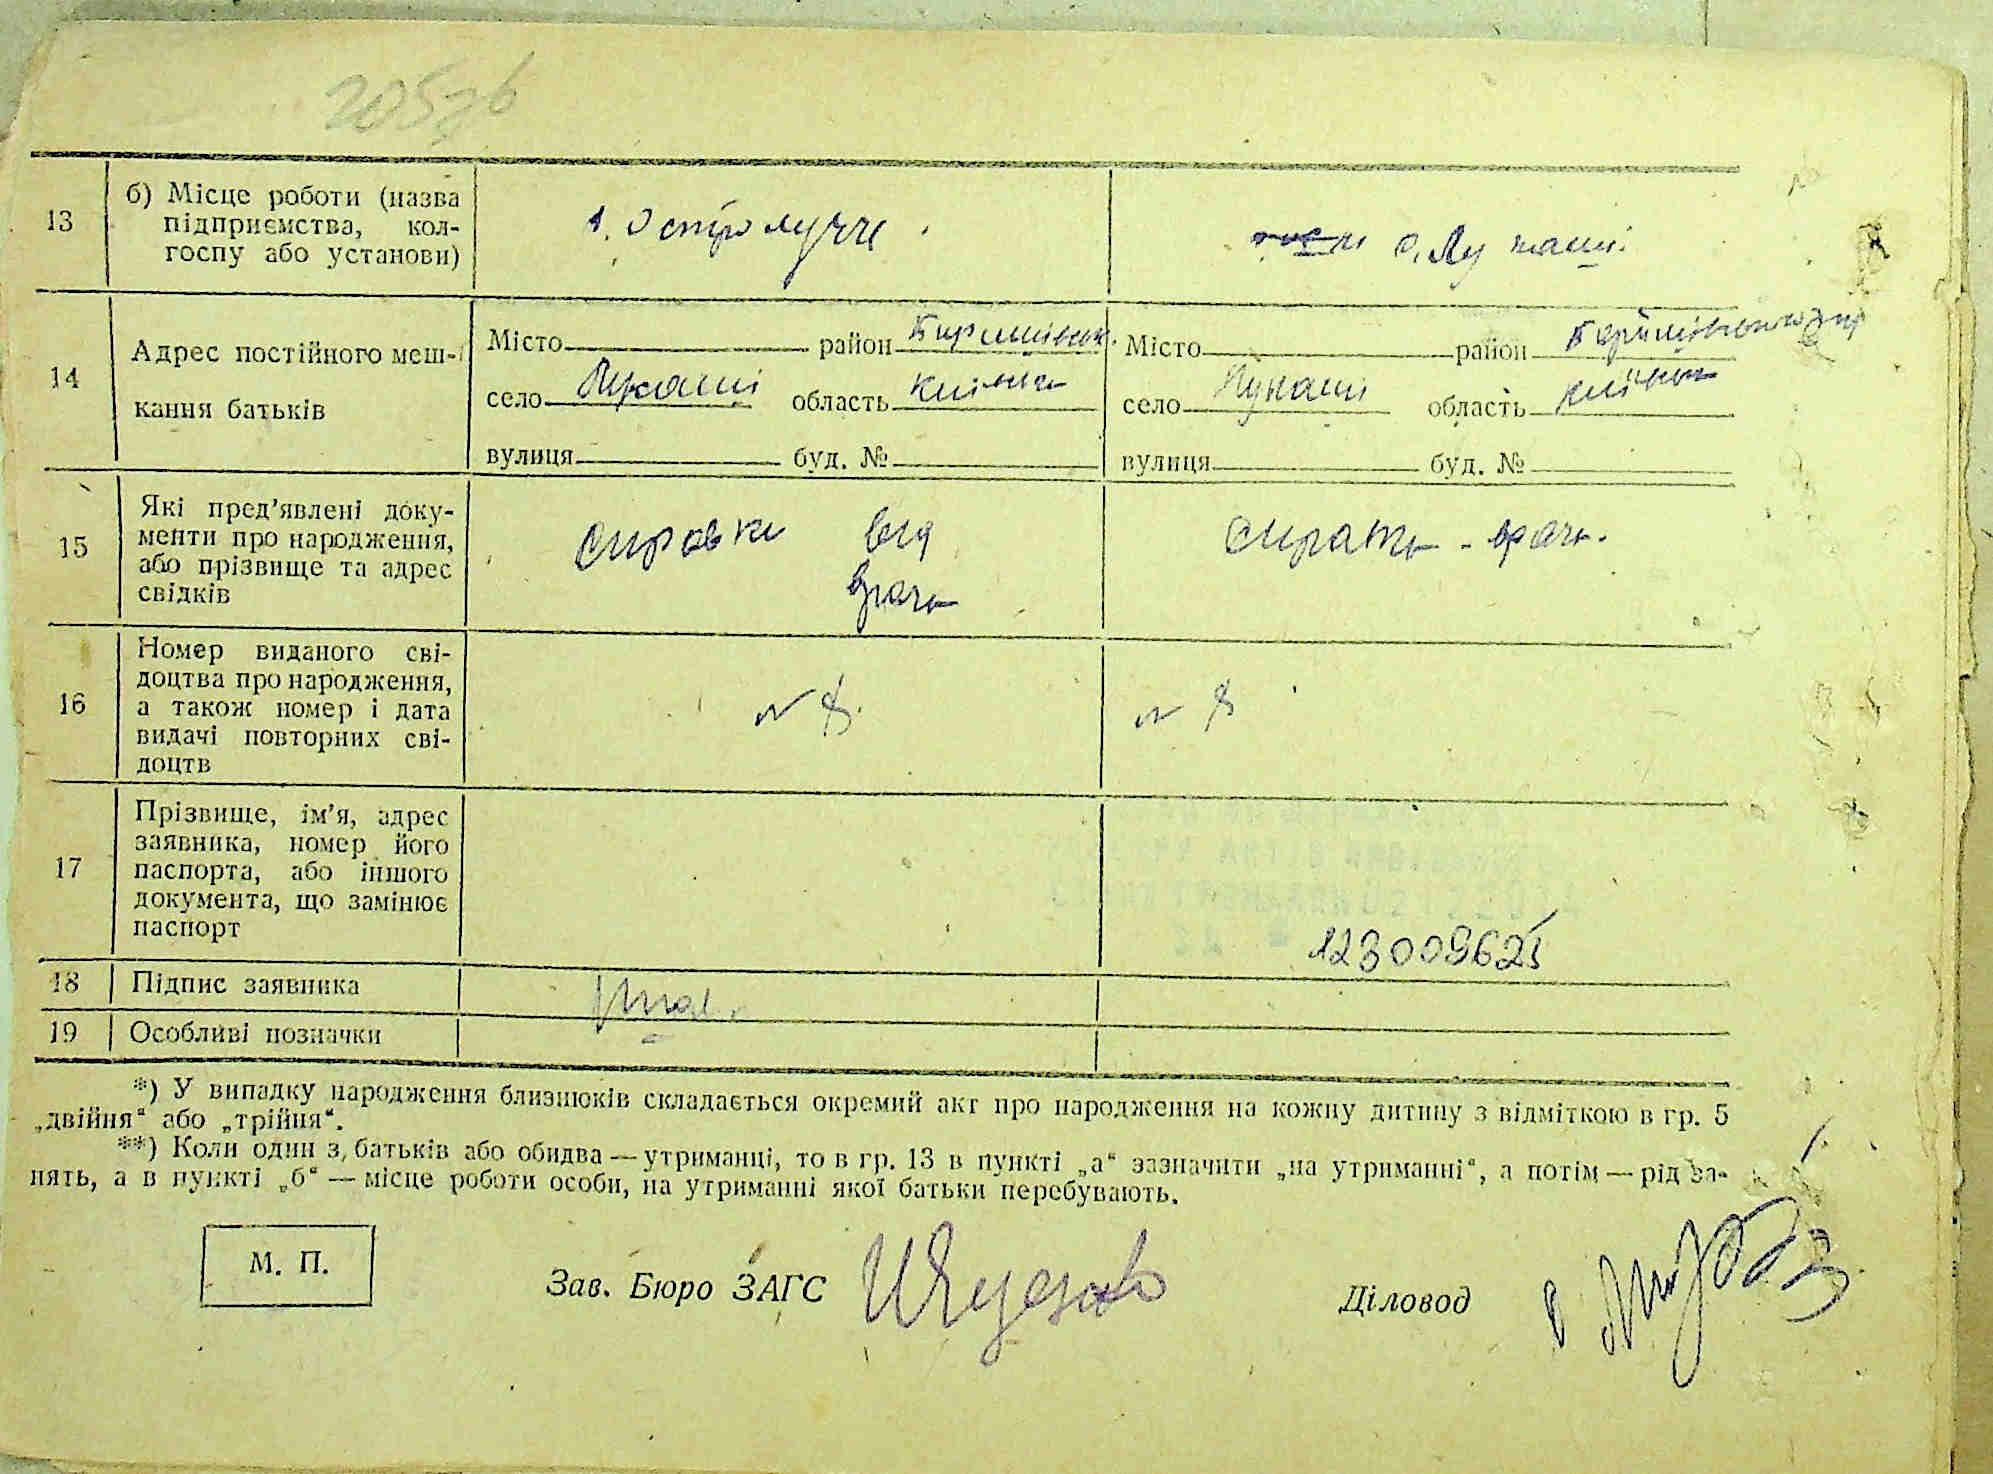 13
б) Місце роботи (назва
підприємства, кол-
госпу або установи)
с. Остролуччє
с. Лукаші
14
Адрес постійного меш-
кання батьків
Місто район
село Лукаші область київська
вулиця буд. №
Місто район
село Лукаші область київськ
вулиця буд. №
15
Які пред'явлені доку-
менти про народження,
або прізвище та адрес
свідків
справки від
врача
справка - врача.
16
Номер виданого сві-
доцтва про народження,
а також номер і дата
видачі повторних сві-
доцтв
N 8.
N 8
17
Прізвище, ім'я, адрес
заявника, номер його
паспорта, або іншого
документа, що замінює
паспорт
18
Підпис заявника
19
Особливі позначки
*) У випадку народження близнюків складається окремий акт про народження на кожну дитину з відміткою в гр. 5
„двійня“ або „трійня“.
**) Коли один з батьків або обидва — утриманці, то в гр. 13 в пункті „а“ зазначити „на утриманні“, а потім — рід за-
нять, а в пункті „б“ — місце роботи особи, на утриманні якої батьки перебувають.
М. П.
Зав. Бюро ЗАГС
Діловод